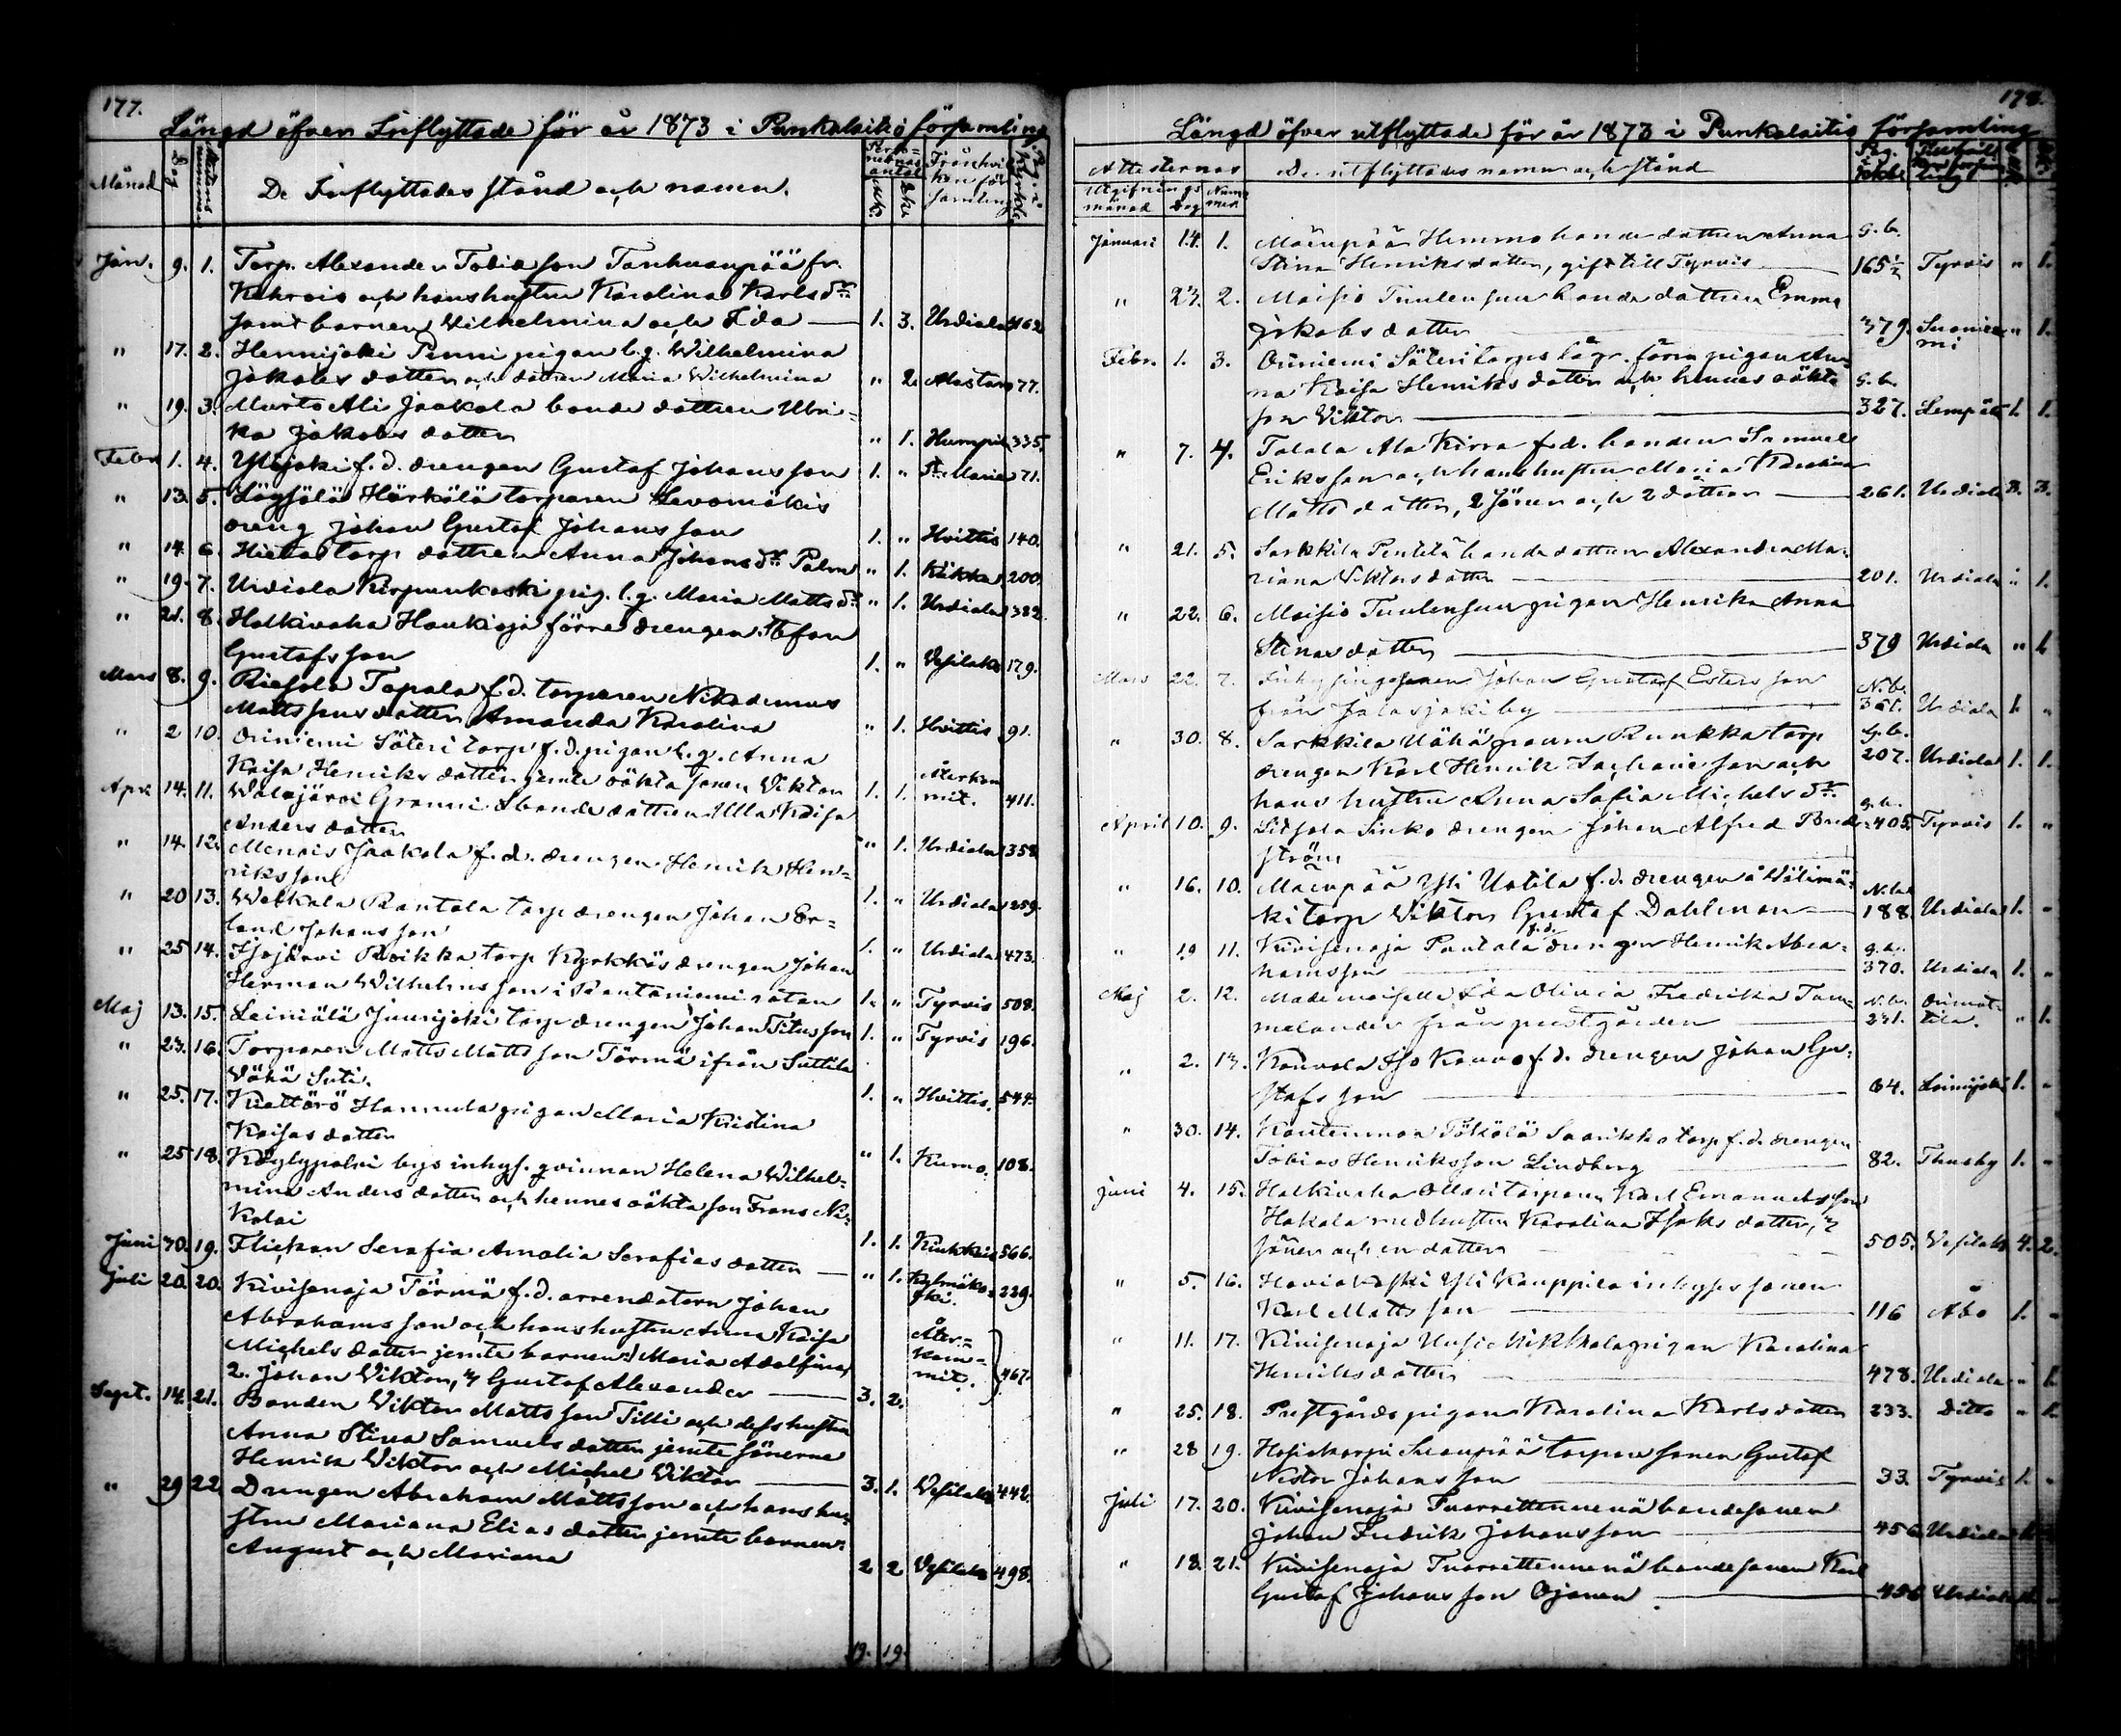 177.
Längd öfver Inflyttade för år 1873 i Punkalaitio församling
Månad Dag De Inflyttades stånd och namn.
Jan. 9. 1. Torp. Alexander Tobiasson Tanhuanpää fr.
och hans hustru Karolina Karlsdr
samt barnen Wilhelmina och Ida 1. 3. Urdiala 462
" 17. 2. Hennijoki Penni pigan l.g. Wilhelmina
Jakobsdotter och dottren Maria Wilhelmina " 2. Alastaro 77.
" 19. 3. Murto Ali Jaakola bonde dottren Ulri-
ka Jakobsdotter " 1. Humpila 335.
Febr. 1. 4. Ylijoki f.d. drengen Gustaf Johansson 1. " St. Marie 71.
" 13. 5. Härkälä torparen Levomäkis
dreng Johan Gustaf Johansson 1. " Hvittis 140.
" 14. 6. torp dottren Anna Johansdr Palm " 1. 200.
" 19. 7. Urdiala pig. l.g. Maria Mattsdr " 1. Urdiala 382.
" 21. 8. Halkivaha Haukioja förre drengen Stefan
Gustafsson 1. " Vesilaks 179.
Mars 8. 9. Riesola Tapala f.d. torparen Nikodemus
Mattssons dotter Amanda Karolina " 1. Hvittis 91.
" 2 10. Oriniemi Säteri torp f.d. pigan l.g. Anna
Kaisa Henriksdotter jemte oäkta sonen Viktor 1. 1. Återkom
mit. 411.
Apr. 14. 11. Walajärvi Granni bonde dottren Ulla Kaisa
Andersdotter " 1. Urdiala 358
" 14. 12. Menois Jaakola f.d. drengen Henrik Hen-
riksson 1. " Urdiala 259.
" 20 13. Wakkala Rantala torp drengen Johan Er-
land Johansson 1. " Urdiala 473.
" 25 14. torp drengen Johan
Herman Wilhelmsson i Rantaniemi rotan 1. " Tyrvis 508.
Maj 13. 15. Leiniälä Juurijoki torp drengen Johan Titusson 1. " Tyrvis 196.
" 23. 16. Torparen Matts Mattsson Törmä ifrån Suttila
Vähä Suti. 1. " Hvittis. 544.
" 25. 17. Kiettärö Hannula pigan Maria Kristina
Kaisasdotter " 1. Kumo. 108.
" 25 18. bys inhys. qvinnan Helena Wilhel-
mina Andersdotter och hennes oäkta son Frans Ni-
kolai 1. 1. 566.
Juni 30. 19. Flickan Serafia Amalia Serafiasdotter " 1. Kylmäko-
ski. 229.
Juli 20. 20. Kivisenoja Törmä f.d. arrendatorn Johan
Abrahamsson och hans hustru Anna Kaisa
Michelsdotter jemte barnen: 1 Maria Adolfina,
2. Johan Viktor, 3 Gustaf Alexander 3. 2. Åter-
kom-
mit. 467.
Sept. 14. 21. Bonden Viktor Mattsson Tilli och dess hustru
Anna Stina Samuelsdotter jemte sönerne
Henrik Viktor och Michel Viktor 3. 1. Vesilaks 442.
" 29 22 Drengen Abraham Mattsson och hans hu-
stru Mariana Eliasdotter jemte barnen:
August och Mariana 2 2 Vesilaks 498.
19. 19.
178.
Längd öfver utflyttade för år 1873 i Punkalaitio församling
Attesternas De utflyttades namn och stånd
Utgifnings Num
månad Dag mer
Januari 14. 1. Mäenpää Hemmo bonde dottren Anna G.b.
Stina Henriksdotter, gift till Tyrvis 165½ Tyrvis " 1.
" 23. 2. Moisio Tuulensuu bonde dottren Emma
Jakobsdotter 379. Suonie-
mi " 1.
Febr. 1. 3. Oriniemi Säteri torps pigan An-
na Kaisa Henriksdotter och hennes oäkta G.b.
son Viktor 327. Lempäälä 1. 1.
" 7. 4. Talala Ala Kirra f.d. bonden Samuel
Eriksson och hans hustru Maria Kristina
Mattsdotter, 2 söner och 2 döttrar 261. Urdiala 3. 3.
" 21. 5. Sarkkila Penttilä bonde dottren Alexandra Ma-
riana Viktorsdotter 201. Urdiala " 1.
" 22. 6. Moisio Tuulensuu pigan Henrika Anna
Stinasdotter 379 Urdiala " 1
Mars 22. 7. Inhysingesonen Johan Gustaf Estersson N.b.
från Jalasjoki by Urdiala 1. "
" 30. 8. Sarkkila Vähä Runkka torp G.b.
drengen Karl Henrik Sachariesson och 207. Urdiala 1. 1.
hans hustru Anna Sofia Michelsdr.
April 10. 9. Liitsola Sirko drengen Johan Alfred Bred- G.b. 405. Tyrvis 1. "
ström
" 16. 10. Mäenpää Yli Uotila f.d. drengen å Välimä- N.b.
ki torp Viktor Gustaf Dahlman 188. Urdiala 1. "
" 19 11. Kivisenoja Pantala f.d. drengen Henrik Abra- G.b.
hamsson 370. Urdiala 1. "
Maj 2. 12. Mademoiselle Ida Olivia Fredrika Tam- N.b. Orimat-
melander från prestgården 231. tila. " 1.
" 2. 13. Kanvala Iso Kouvo f.d. drengen Johan Gu-
stafsson 64. Loimijoki 1. "
" 30. 14. Kanteenmaa Pökölä Saarikko torp f.d. drengen
Tobias Henriksson Lindberg 82. Thusby 1. "
Juni 4. 15. Halkivaha Ollari torparen Karl Emanuelsson
Hakala med hustru Karolina Isaksdotter, 3
söner och en dotter 505. Vesilaks 4. 2.
" 5. 16. Haviokoski Yli Kauppila inhyses sonen
Karl Mattsson 116 Åbo 1. "
" 11. 17. Kivisenoja pigan Karolina
Henriksdotter 478. Urdiala " 1.
" 25. 18. Prestgårds pigan Karolina Karlsdotter 233. Ditto " 1.
" 28 19. torpare sonen Gustaf
Nestor Johansson 33. Tyrvis 1. "
Juli 17. 20. Kivisenoja bondesonen
Johan Fredrik Johansson 456 Urdiala 1.
" 18. 21. Kivisenoja bondesonen Karl
Gustaf Johansson Ojanen 456 Urdiala 1. "